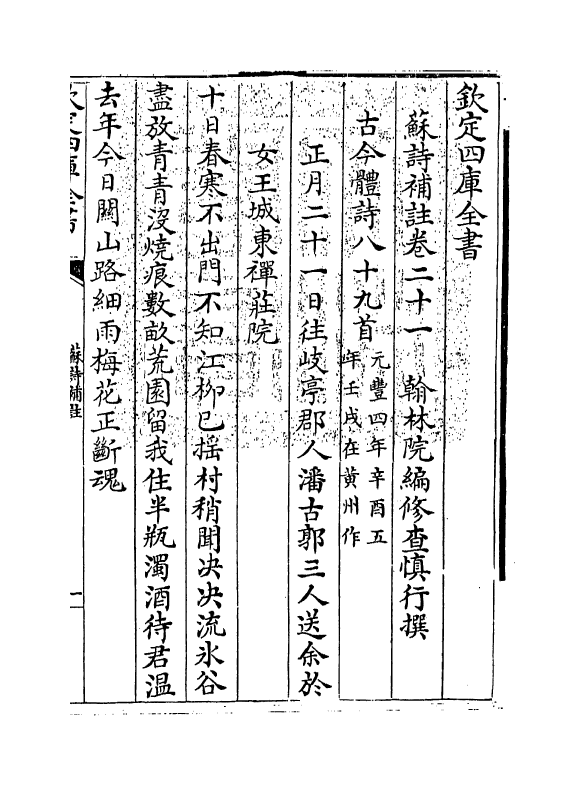 欽定四庫全書
蘇詩補註卷二十一　翰林院編修查慎行撰
古今體詩八十九首
元豐四年辛酉五
年壬戌在黄州作
正月二十一日往岐亭郡人潘古郭三人送余於
女王城東禪莊院
十日春寒不出門不知江栁已揺村稍聞决决流氷谷
盡放青青沒燒痕數畝荒園留我住半瓶濁酒待君温
去年今日闗山路細雨梅花正斷魂
欽定四庫全書
蘇詩補註
一